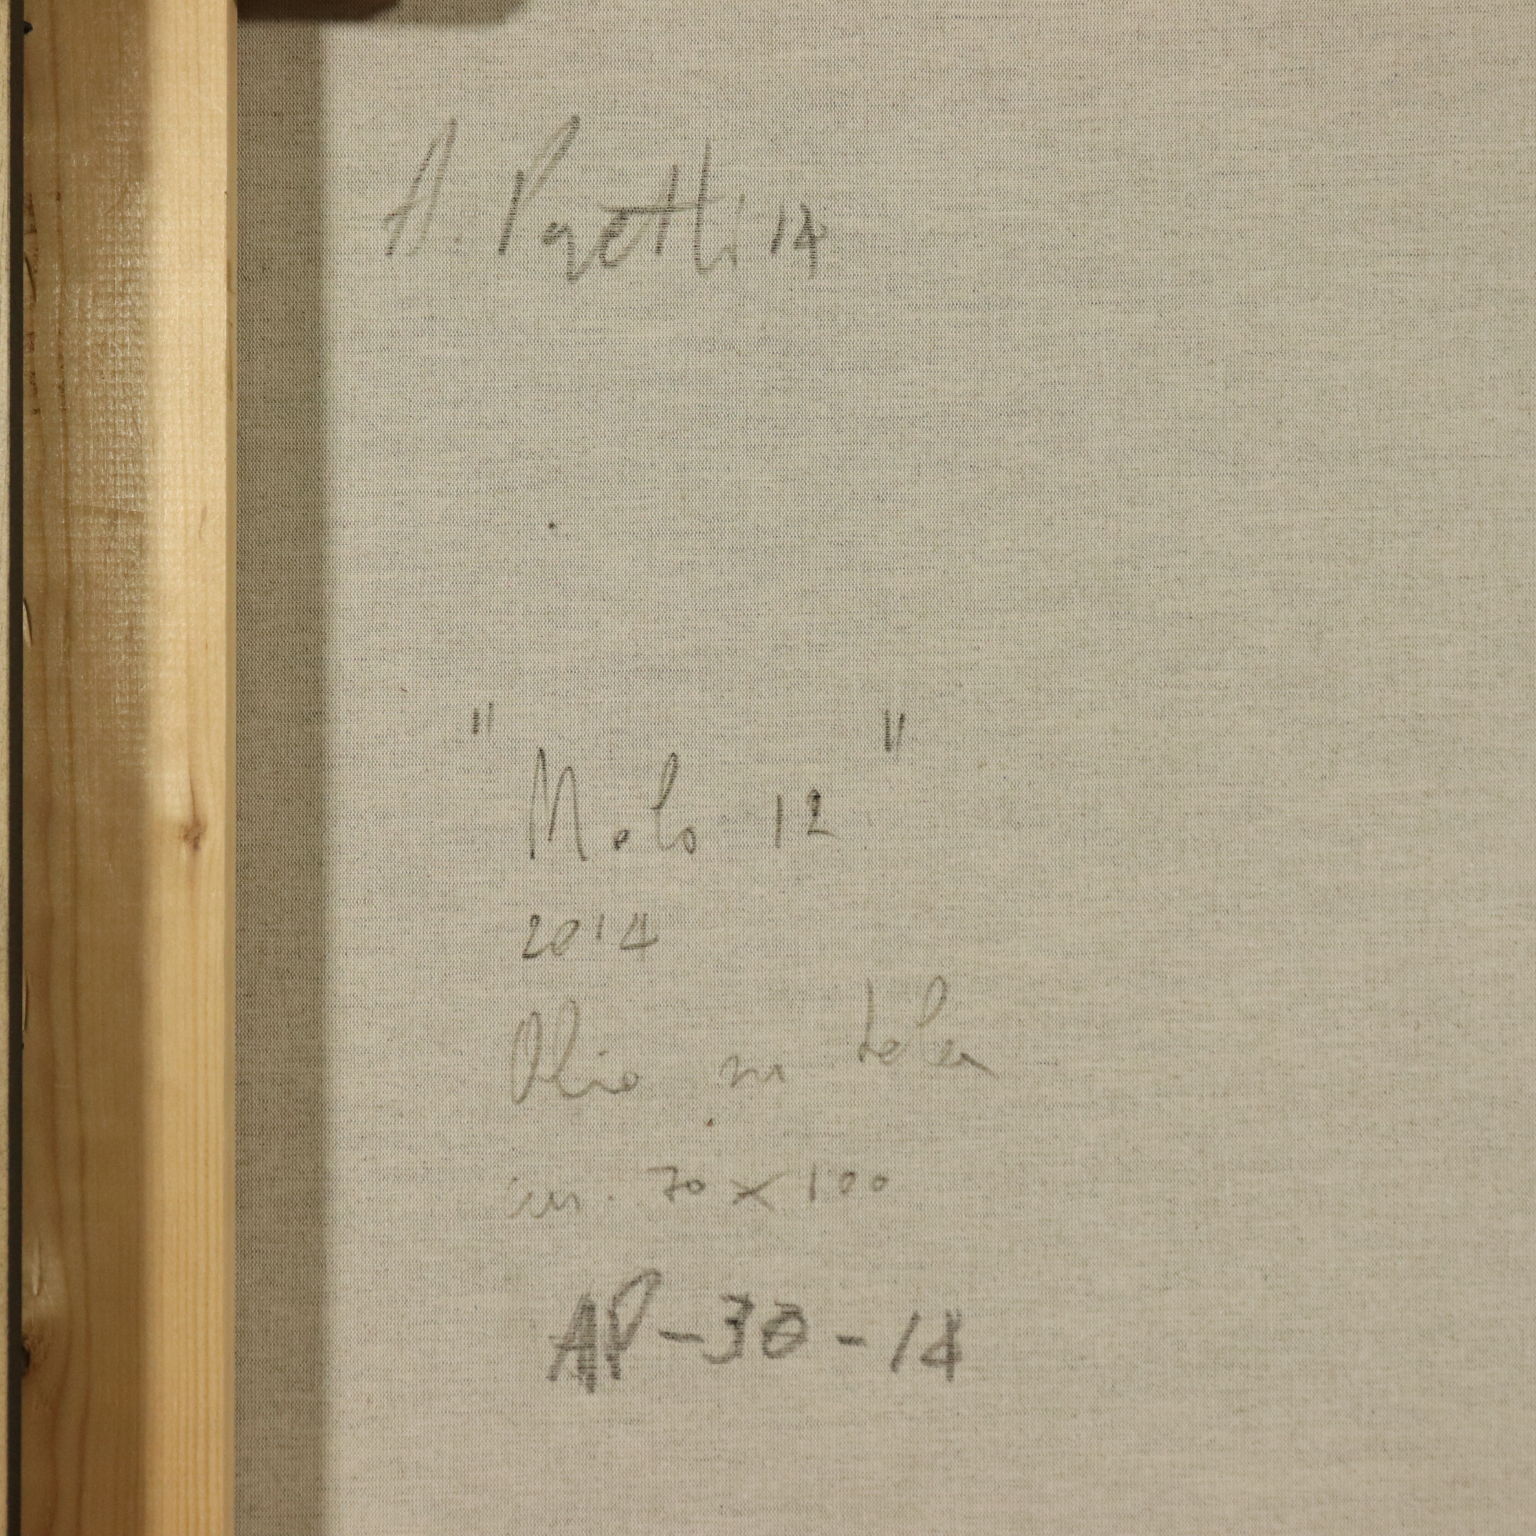 A. Papetti 14
" Molo 12 "
2014
Olio su tela
cm. 70 x 100
AP-30-14